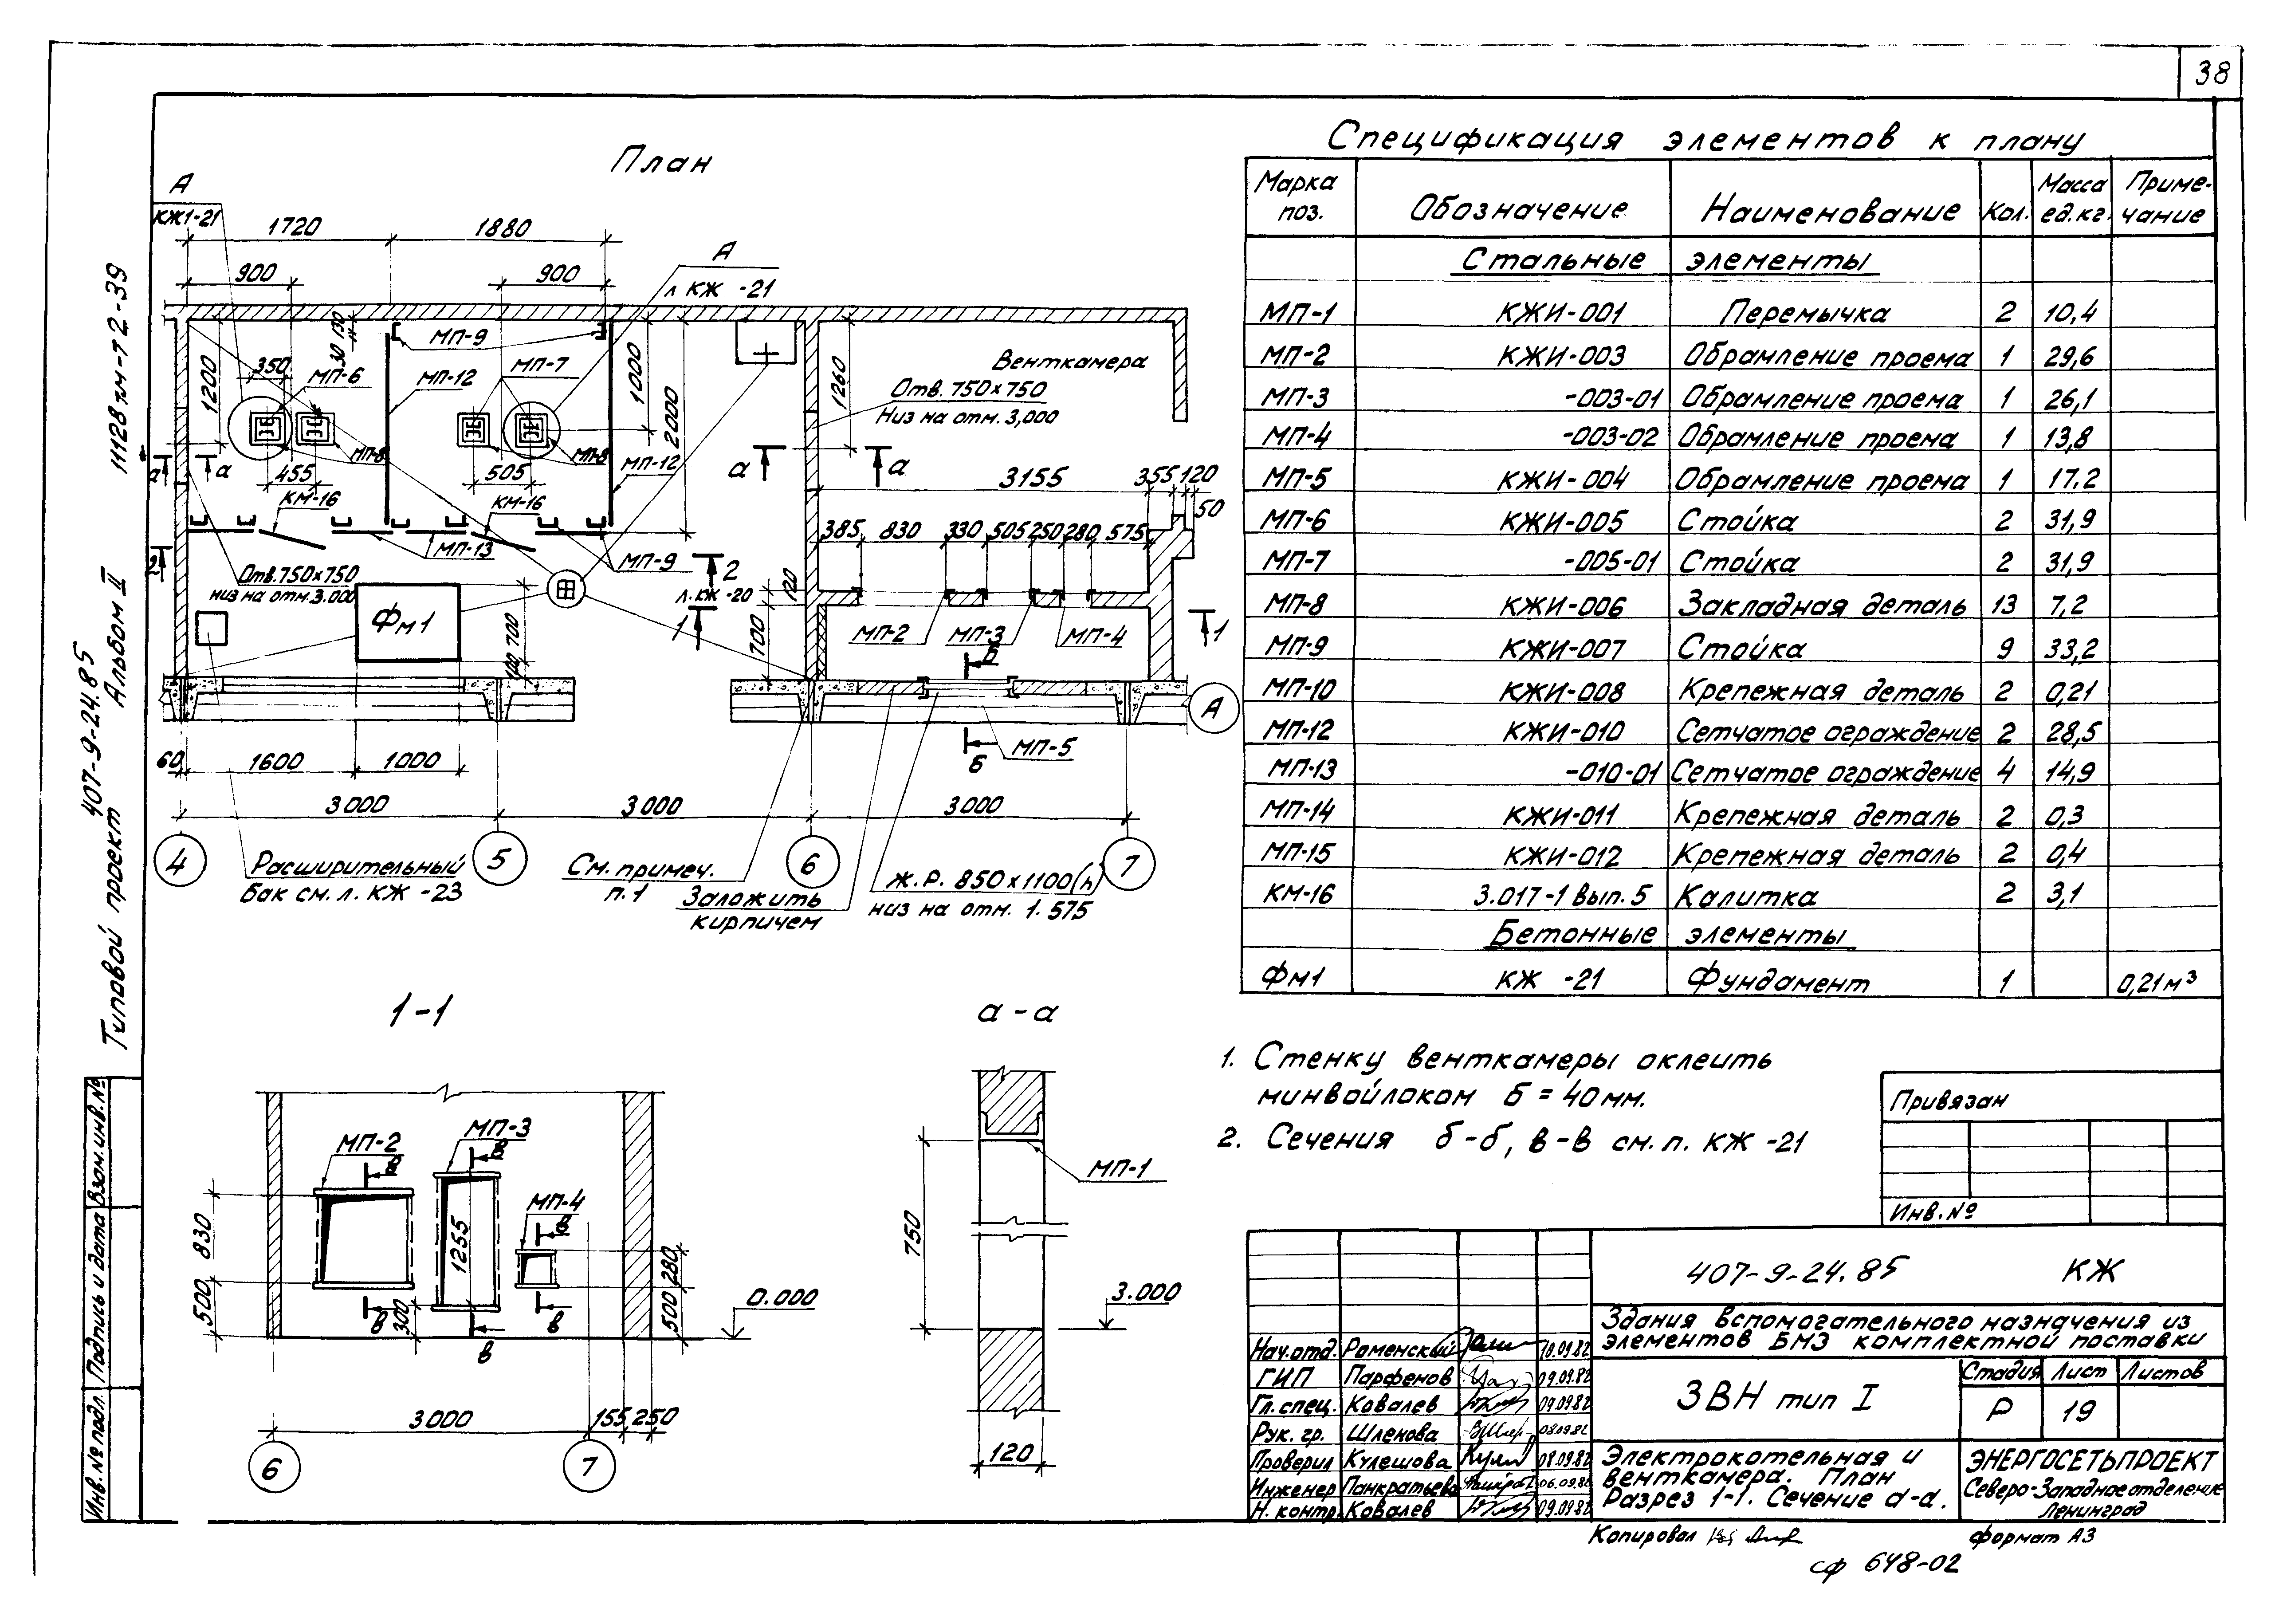 38
План
А
КЖ1-21
1720
1880
900
900
А
л КЖ -21
МП-9
130
30
1200
350
МП-6
МП-12
МП-7
1000
2000
1260
Венткамера
Отв. 750×750
Низ на отм. 3,000
МП-8
МП-8
МП-12
а
а
455
505
КМ-16
КМ-16
а
а
3155
355
120
50
385
830
330
505
250
280
575
МП-13
МП-9
2
2
Отв. 750×750
низ на отм. 3.000
л. КЖ -20
120
Фм1
700
100
1
1
700
МП-2
МП-3
МП-4
Б
Б
МП-5
А
60
1600
1000
3000
3000
3000
4
5
6
7
Расширительный
бак см. л. КЖ -23
См. примеч.
п. 1
Заложить
кирпичем
Ж.Р. 850×1100(h)
низ на отм. 1.575
Спецификация элементов к плану
Марка поз. Обозначение Наименование Кол. Масса ед.кг. Примечание
Стальные элементы
МП-1 КЖИ-001 Перемычка 2 10,4
МП-2 КЖИ-003 Обрамление проема 1 29,6
МП-3 -003-01 Обрамление проема 1 26,1
МП-4 -003-02 Обрамление проема 1 13,8
МП-5 КЖИ-004 Обрамление проема 1 17,2
МП-6 КЖИ-005 Стойка 2 31,9
МП-7 -005-01 Стойка 2 31,9
МП-8 КЖИ-006 Закладная деталь 13 7,2
МП-9 КЖИ-007 Стойка 9 33,2
МП-10 КЖИ-008 Крепежная деталь 2 0,21
МП-12 КЖИ-010 Сетчатое ограждение 2 28,5
МП-13 -010-01 Сетчатое ограждение 4 14,9
МП-14 КЖИ-011 Крепежная деталь 2 0,3
МП-15 КЖИ-012 Крепежная деталь 2 0,4
КМ-16 3.017-1 Вып. 5 Калитка 2 3,1
Бетонные элементы
Фм1 КЖ -21 Фундамент 1 0,21м³
1-1
МП-2
МП-3
МП-4
в
в
в
в
в
в
830
500
1255
300
280
500
0.000
3000
155
250
6
7
а - а
МП-1
750
3.000
120
1. Стенку венткамеры оклеить
минвойлоком б = 40мм.
2. Сечения б-б, в-в см. л. КЖ -21
Привязан
Инв. №
407-9-24.85 КЖ
Здания вспомогательного назначения из
элементов БМЗ комплектной поставки
ЗВН тип I
Стадия Лист Листов
Р 19
Электрокотельная и
венткамера. План
Разрез 1-1. Сечение а-а.
ЭНЕРГОСЕТЬПРОЕКТ
Северо-Западное отделение
Ленинград
Нач. отд. Роменский 10.09.82
ГИП Парфенов 09.09.82
Гл. спец. Ковалев 09.09.82
Рук. гр. Шленова 08.09.82
Проверил Кулешова 08.09.82
Инженер Панкратьева 06.09.82
Н. контр. Ковалев 09.09.82
Копировал
формат А3
сф 648-02
Типовой проект 407-9-24.85 Альбом II 11128тм-т2-39
Взам. инв. №
Подпись и дата
Инв. № подл.